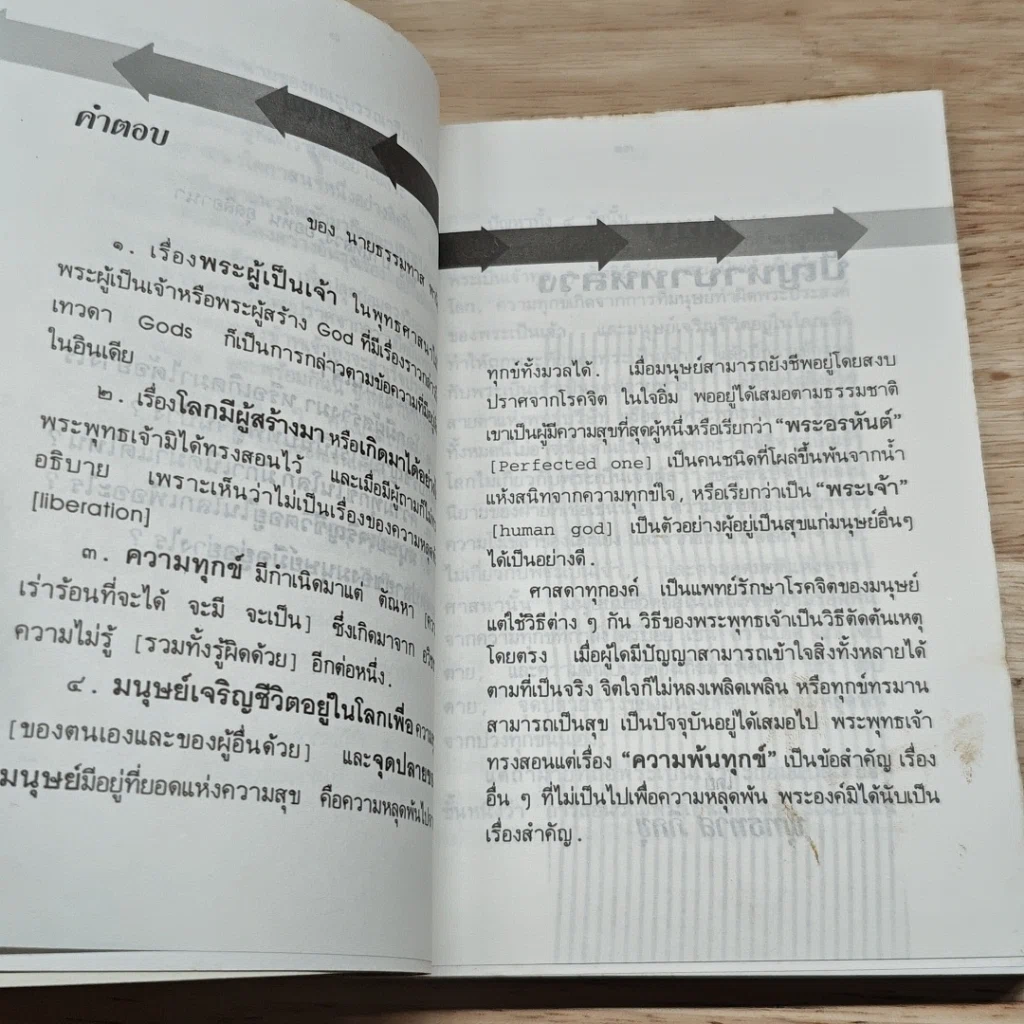 คำตอบ
ของ นายธรรมทาส
๑. เรื่องพระผู้เป็นเจ้า ในพุทธศาสนา
พระผู้เป็นเจ้าหรือพระผู้สร้าง God ที่มีเรื่องราว
เทวดา Gods ก็เป็นการกล่าวตามข้อความที่มีอยู่
ในอินเดีย
๒. เรื่องโลกมีผู้สร้างมา หรือเกิดมาได้อย่าง
พระพุทธเจ้ามิได้ทรงสอนไว้ และเมื่อมีผู้ถามก็
อธิบาย เพราะเห็นว่าไม่เป็นเรื่องของความหลุด
[liberation]
๓. ความทุกข์ มีกำเนิดมาแต่ ตัณหา
เร่าร้อนที่จะได้ จะมี จะเป็น] ซึ่งเกิดมาจาก
ความไม่รู้ [รวมทั้งรู้ผิดด้วย] อีกต่อหนึ่ง.
๔. มนุษย์เจริญชีวิตอยู่ในโลกเพื่อ
[ของตนเองและของผู้อื่นด้วย] และจุดปลาย
มนุษย์มีอยู่ที่ยอดแห่งความสุข คือความหลุดพ้น
ทุกข์ทั้งมวลได้. เมื่อมนุษย์สามารถยังชีพอยู่โดยสงบ
ปราศจากโรคจิต ในใจอิ่ม พออยู่ได้เสมอตามธรรมชาติ
เขาเป็นผู้มีความสุขที่สุดผู้หนึ่งหรือเรียกว่า “พระอรหันต์”
[Perfected one] เป็นคนชนิดที่โผล่ขึ้นพ้นจากน้ำ
แห่งสนิทจากความทุกข์ใจ, หรือเรียกว่าเป็น “พระเจ้า”
[human god] เป็นตัวอย่างผู้อยู่เป็นสุขแก่มนุษย์อื่นๆ
ได้เป็นอย่างดี.
ศาสดาทุกองค์ เป็นแพทย์รักษาโรคจิตของมนุษย์
แต่ใช้วิธีต่าง ๆ กัน วิธีของพระพุทธเจ้าเป็นวิธีตัดต้นเหตุ
โดยตรง เมื่อผู้ใดมีปัญญาสามารถเข้าใจสิ่งทั้งหลายได้
ตามที่เป็นจริง จิตใจก็ไม่หลงเพลิดเพลิน หรือทุกข์ทรมาน
สามารถเป็นสุข เป็นปัจจุบันอยู่ได้เสมอไป พระพุทธเจ้า
ทรงสอนแต่เรื่อง “ความพ้นทุกข์” เป็นข้อสำคัญ เรื่อง
อื่น ๆ ที่ไม่เป็นไปเพื่อความหลุดพ้น พระองค์มิได้นับเป็น
เรื่องสำคัญ.